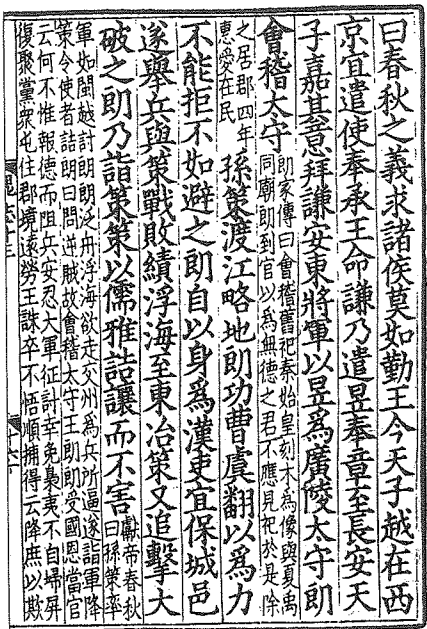 曰春秋之義求諸侯莫如勤王今天子越在西
京宜遣使奉承王命謙乃遣昱奉章至長安天
子嘉其意拜謙安東將軍以昱爲廣陵太守朗
會稽太守
朗家傳曰會稽舊祀秦始皇刻木為像與夏禹
同廟朗到官以為無德之君不應見祀於是除
之居郡四年
惠愛在民
孫策渡江略地朗功曹虞翻以爲力
不能拒不如避之朗自以身爲漢吏宜保城邑
遂舉兵與策戰敗績浮海至東冶策又追擊大
破之朗乃詣策策以儒雅詰讓而不害
獻帝春秋
曰孫策率
軍如閩越討朗朗泛舟浮海欲走交州為兵所逼遂詣軍降
策令使者詰朗曰問逆賊故會稽太守王朗朗受國恩當官
云何不惟報德而阻兵安忍大軍征討幸免梟夷不自掃屏
復聚黨衆屯住郡境遠勞王誅卒不悟順捕得云降庶以欺